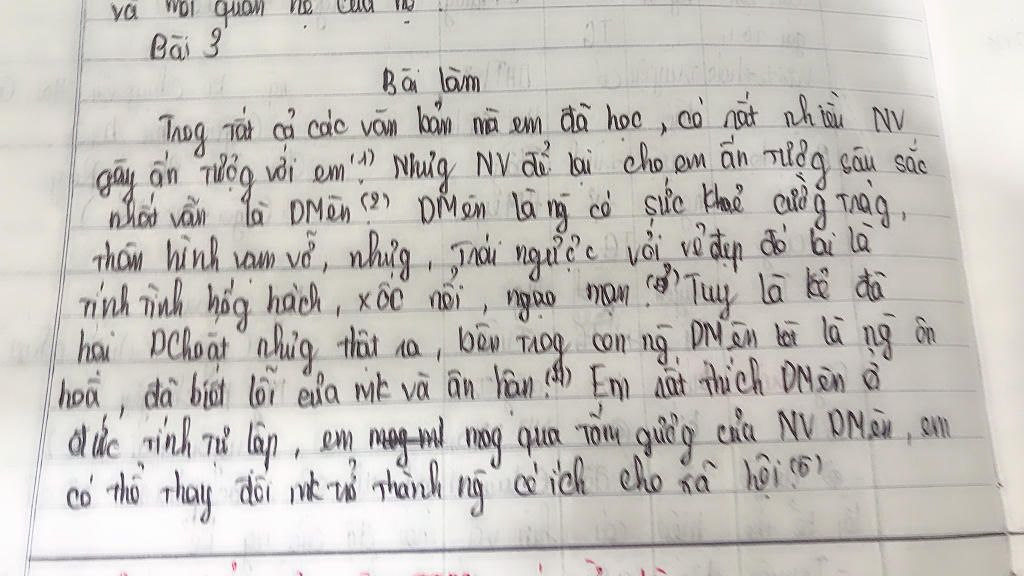 và mối quan hệ của họ.
Bài 3
Bài làm
Trog tất cả các văn bản mà em đã học, có rất nhiều NV
gây ấn tượg với em.(1) Nhưg NV để lại cho em ấn tượg sâu sắc
nhất vẫn là DMèn.(2) DMèn là ng có sức khoẻ cườg trág,
thân hình vạm vỡ, nhưg, trái ngược với vẻ đẹp đó lại là
tính tình hốg hách, xốc nổi, ngạo mạn.(3) Tuy là kẻ đã
hại DChoắt nhưg thật ra, bên trog con ng DMèn lại là ng ôn
hoà, đã biết lỗi của mk và ân hận.(4) Em rất thích DMèn ở
đức tính tự lập, em mog qua tấm gươg của NV DMèn, em
có thể thay đổi mk trở thành ng có ích cho xã hội.(5)